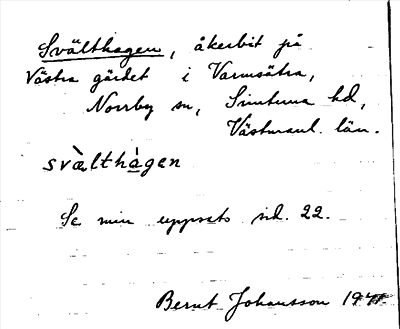 Svälthagen, åkerbit på
Västra gärdet i Varmsätra,
Norrby sn, Simtuna hd,
Västmanl. län.
svæ̀lthàgen
Se min uppsats sid. 22.
Bernt Johansson